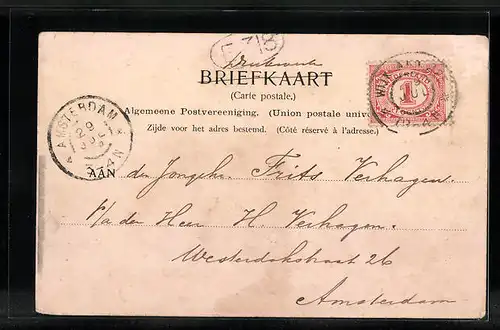 Drukwerk
BRIEFKAART
(Carte postale.)
Algemeene Postvereeniging. (Union postale univ
Zijde voor het adres bestemd. (Côté réservé à l'adresse.)
AMSTERDAM
AAN den Jongeh. Frits Verhagen.
p/a den Heer H. Verhagen.
Westerdokstraat 26
Amsterdam